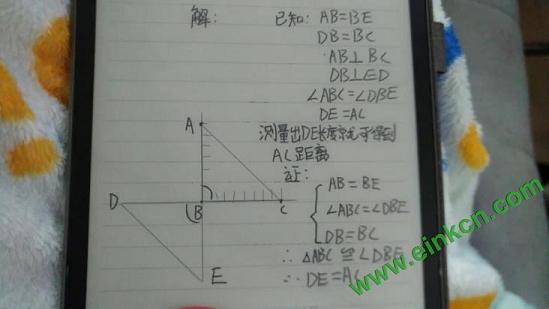 解: 已知: AB=BE
DB=BC
AB⊥BC
DB⊥ED
∠ABC=∠DBE
DE=AC
测量出DE长度就可得到
AC距离
证:
AB=BE
∠ABC=∠DBE
DB=BC
∴△ABC≌∠DBE
∴DE=AC
A
D
B
C
E
www.einkcn.com